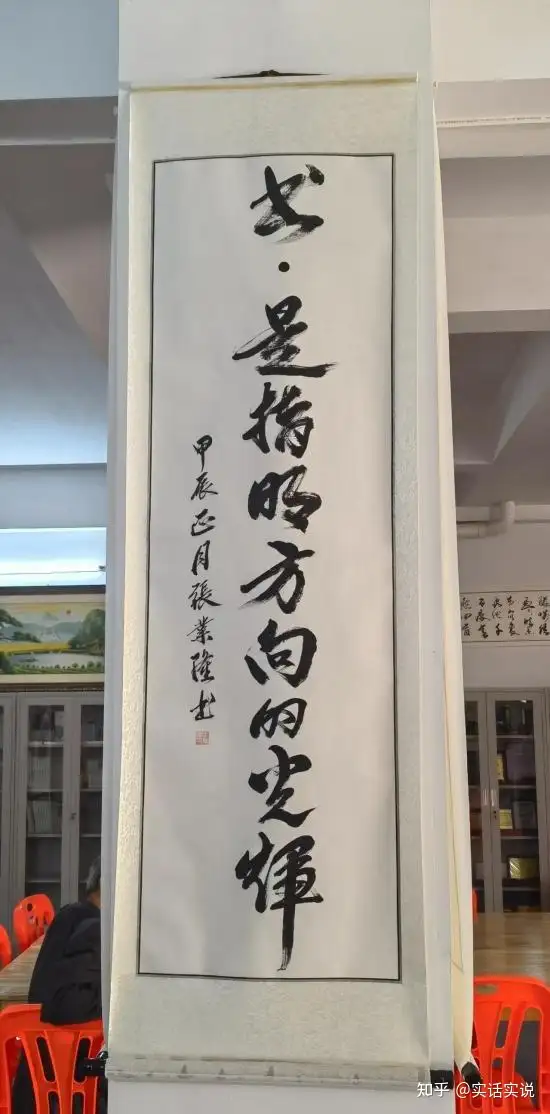 书·是指明方向的光輝
甲辰正月張業隆书
知乎 @实话实说